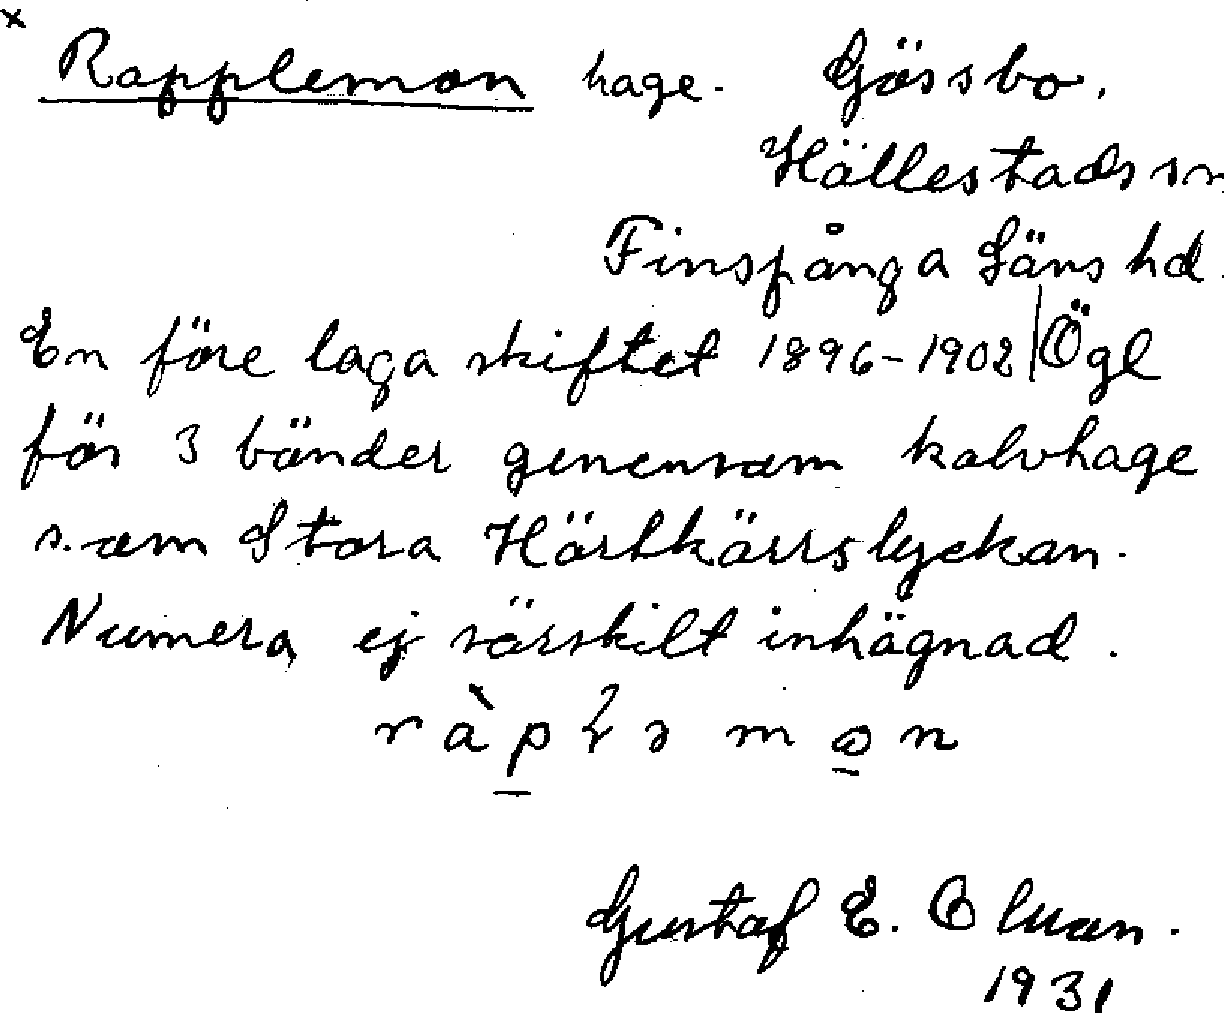 x
Rapplemon hage. Gössbo.
Hällestads sn
Finspånga Läns hd.
En före laga skiftet 1896-1902 | Ögl
för 3 bönder gemensam kalvhage
som Stora Hörtkärrslyckan.
Numera ej särskilt inhägnad.
Gustaf E.
1931